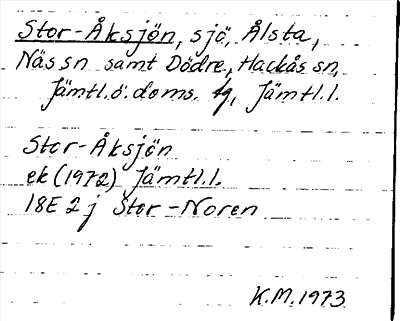 Stor-Åksjön, sjö, Ålsta,
Näs sn samt Dödre, Hackås sn,
Jämtl. ö. doms. tg, Jämtl.l.
Stor-Åksjön
ek (1972) Jämtl.l.
18E 2j Stor-Noren
K.M. 1973